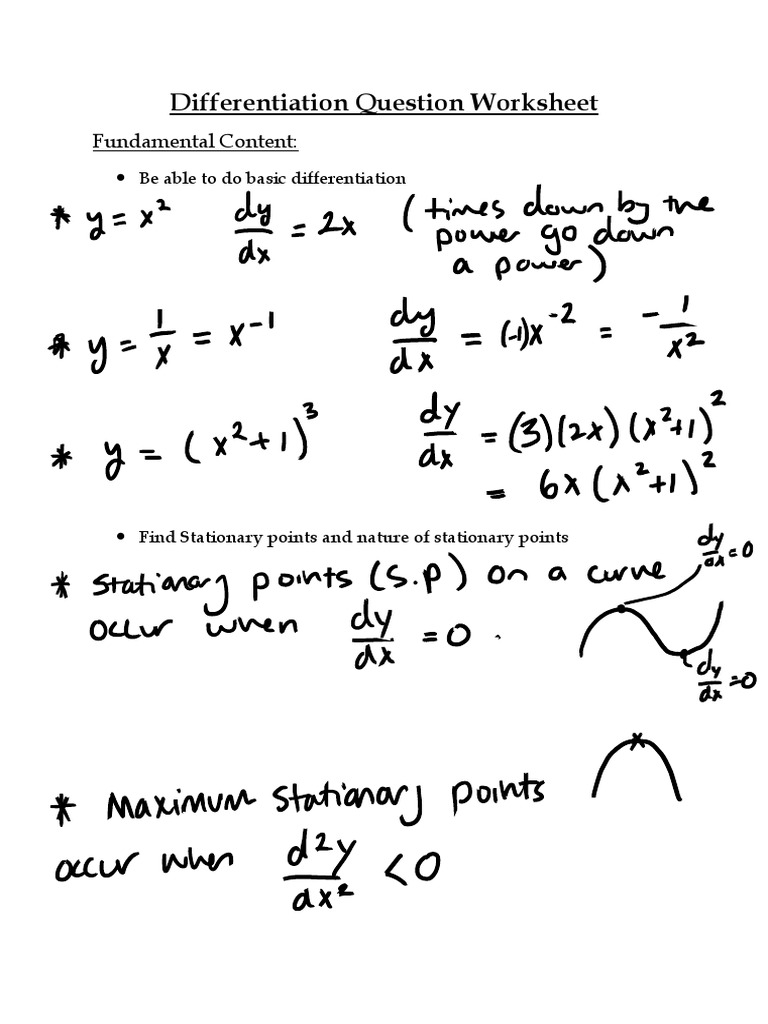 Differentiation Question Worksheet
Fundamental Content:
• Be able to do basic differentiation
* y = x² dy/dx = 2x (times down by the
power go down
a power)
* y = 1/x = x⁻¹ dy/dx = (-1)x⁻² = -1/x²
* y = (x²+1)³ dy/dx = (3)(2x)(x²+1)²
= 6x(x²+1)²
• Find Stationary points and nature of stationary points
dy/dx = 0
* Stationary points (S.P) on a curve
occur when dy/dx = 0.
dy/dx = 0
* Maximum stationary points
occur when d²y/dx² < 0